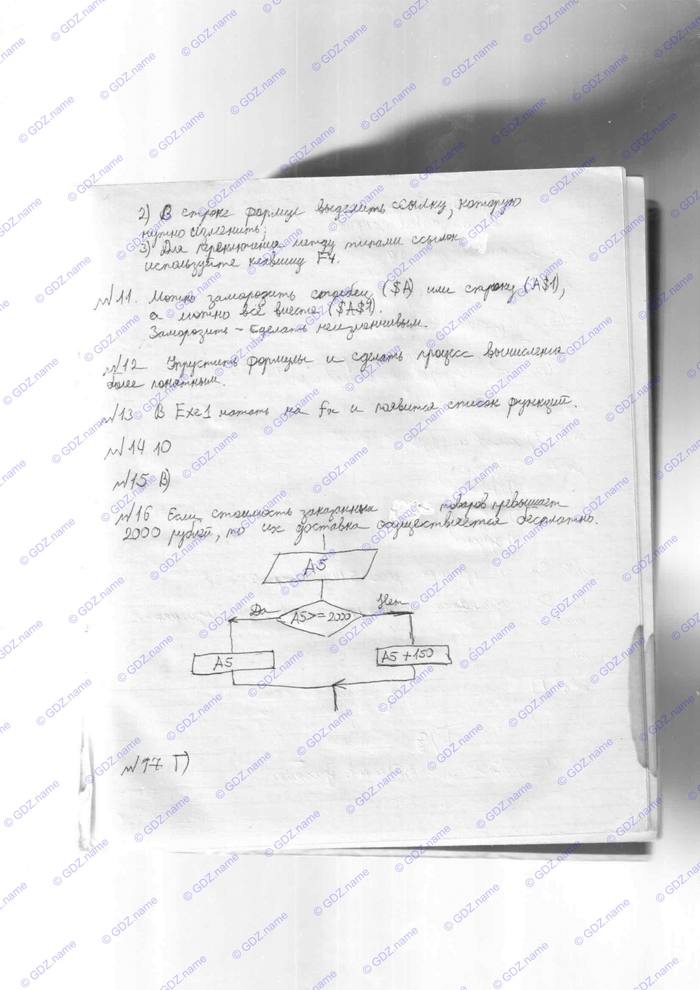 2) В строке формул выделить ссылку, которую
нужно изменить;
3) Для переключения между типами ссылок
используйте клавишу F4.
№11. Можно заморозить столбец ($A) или строку (A$1),
а можно всё вместе ($A$1).
Заморозить – сделать неизменчивым.
№12 Упростить формулы и сделать процесс вычисления
более понятным.
№13 В Exel нажать на fx и появится список функций.
№14 10
№15 В)
№16 Если стоимость заказанных товаров превышает
2000 рублей, то их доставка осуществляется бесплатно.
A5
Да
A5>=2000
Нет
A5
A5+150
№17 Г)
© GDZ.name